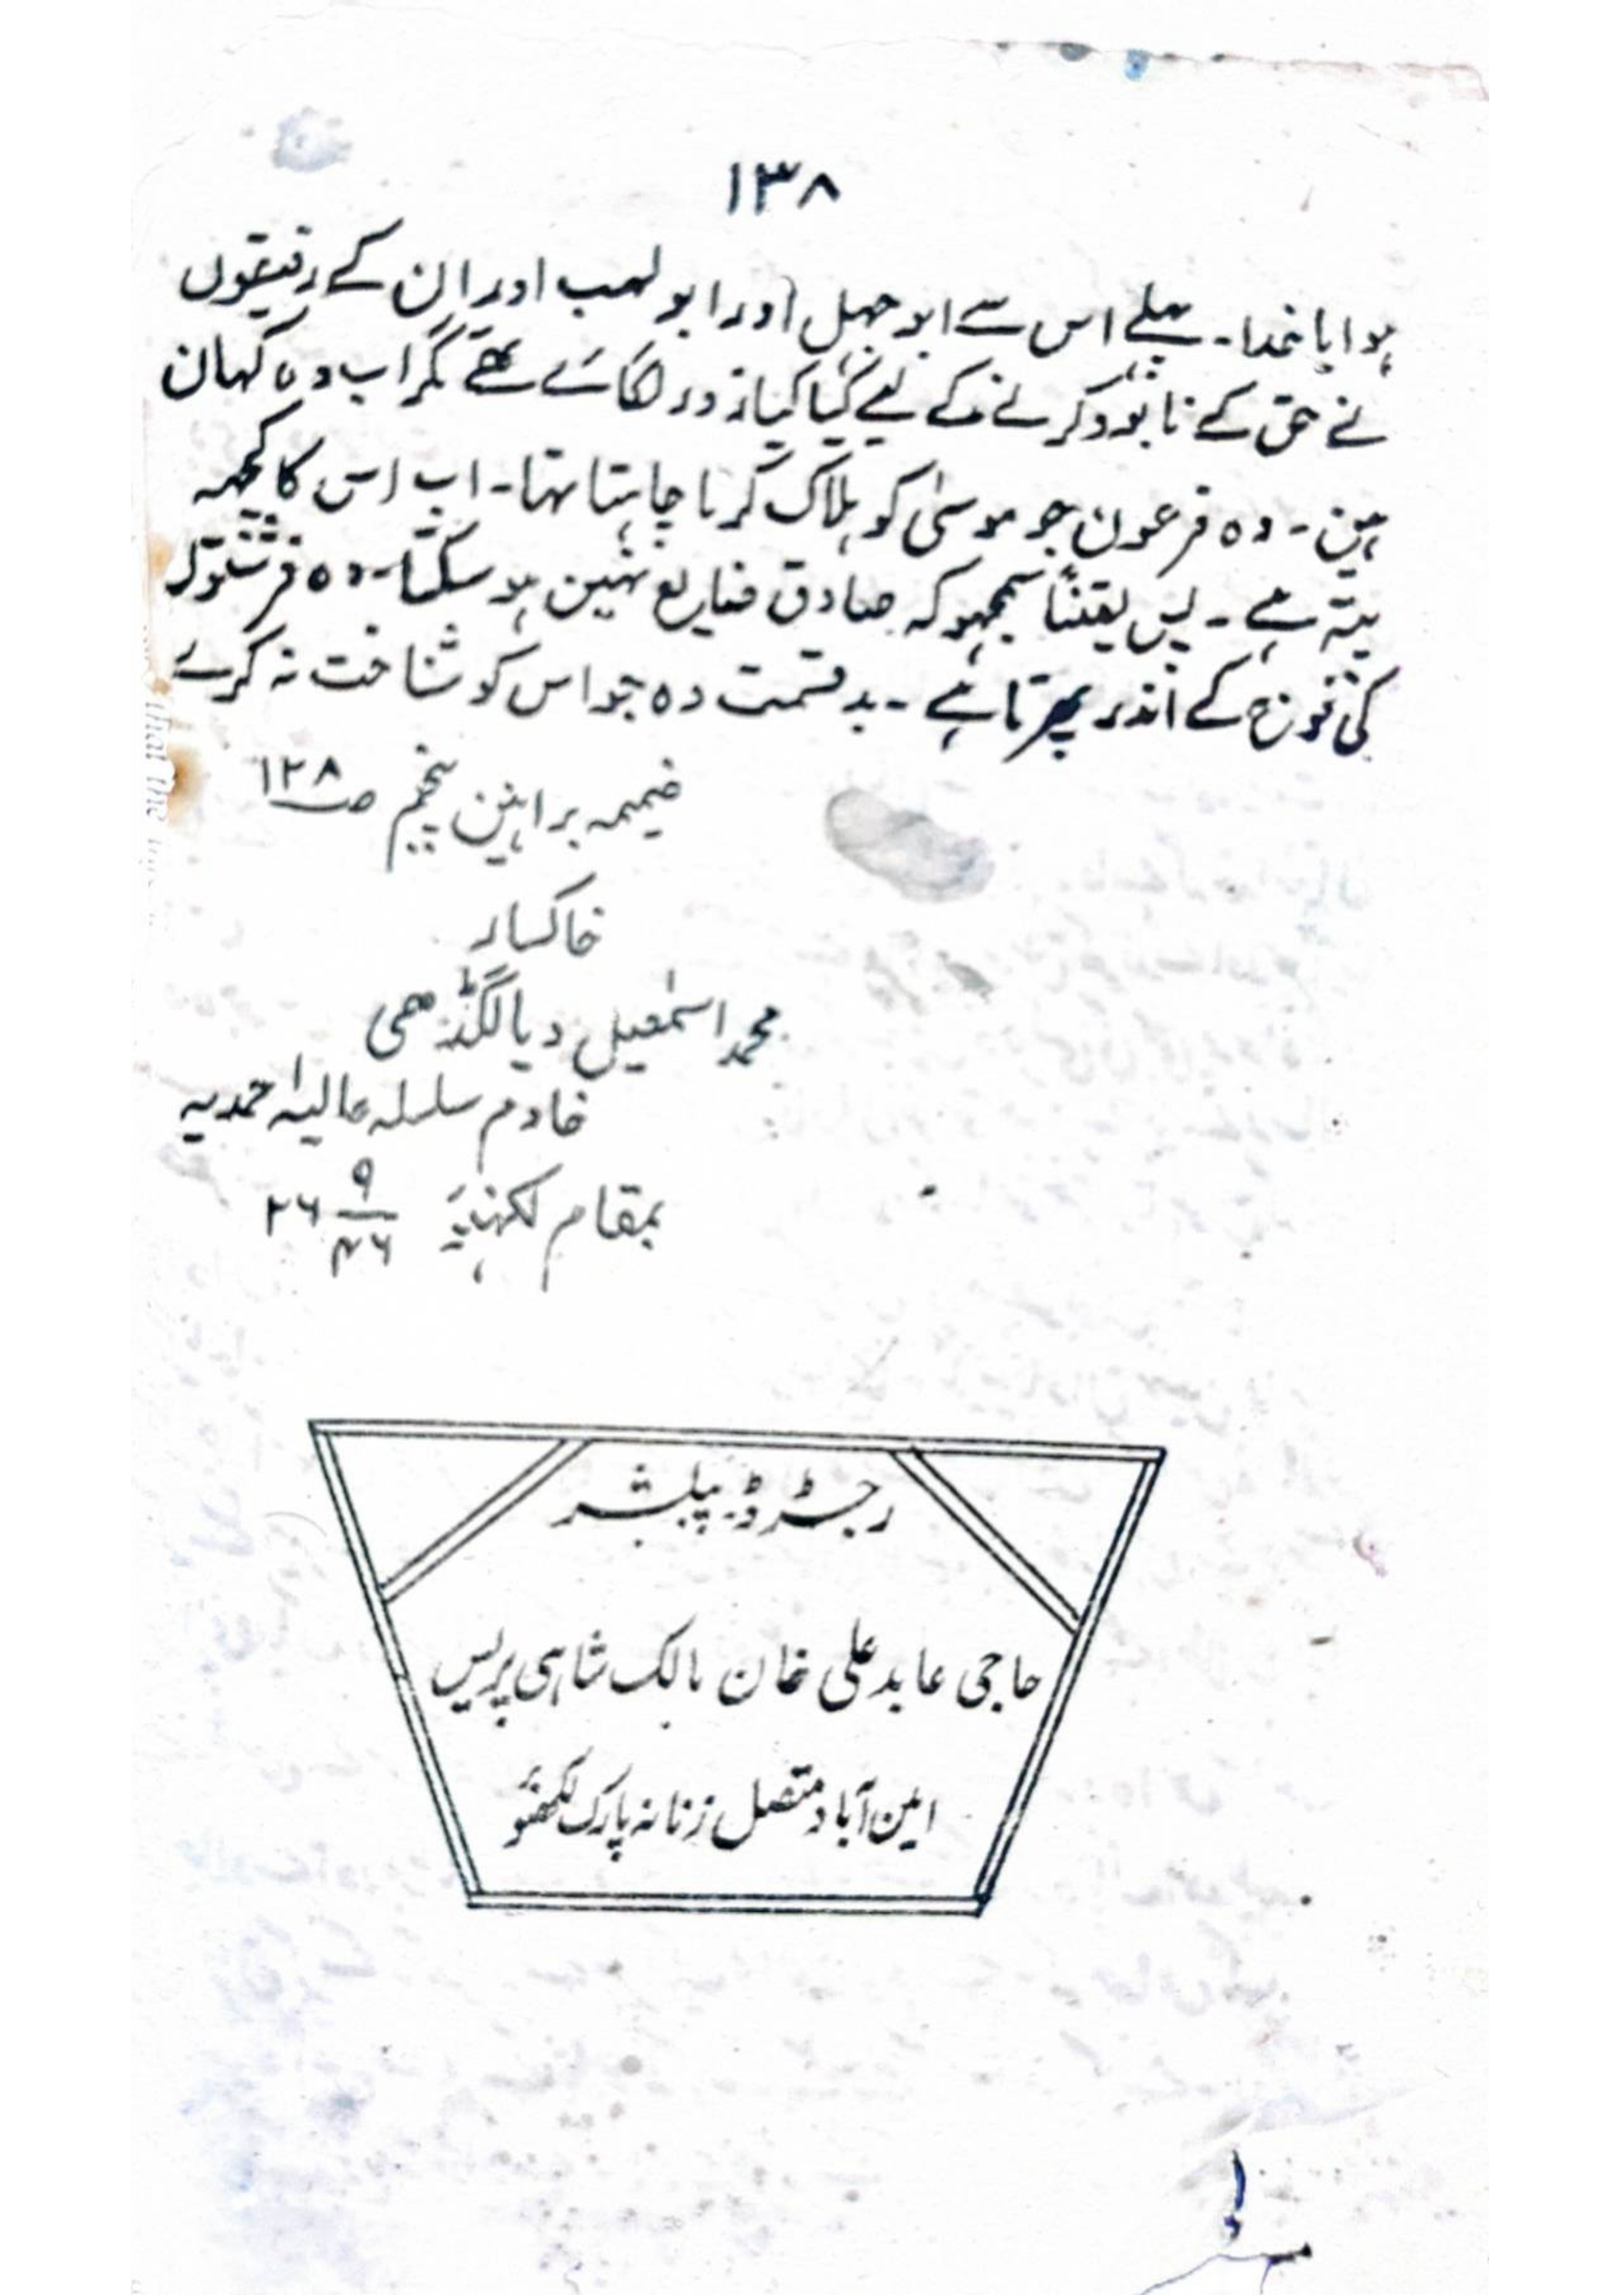 ۱۳۸
ہوا یا خدا۔ پہلے اس سے ابوجہل اور ابو لہب اور ان کے رفیقوں
نے حق کے نابود کرنے کے لیے کیا کیا زور لگائے تھے مگر اب وہ کہان
ہین۔ وہ فرعون جو موسیٰ کو ہلاک کرنا چاہتا تہا۔ اب اس کا کچہہ
پتہ ہے۔ پس یقیناً سمجہو کہ صادق ضایع نہین ہو سکتا۔ وہ فرشتوں
کی فوج کے اندر پھرتا ہے۔ بدقسمت وہ جو اس کو شناخت نہ کرے
ضمیمہ براہین پنجم ص۱۲۸
خاکسار
محمد اسمٰعیل دیالگڈھی
خادم سلسلہ عالیہ احمدیہ
بمقام لکہنؤ
رجسٹرڈ پبلشر
حاجی عابد علی خان مالک شاہی پریس
امین آباد متصل زنانہ پارک لکھنؤ